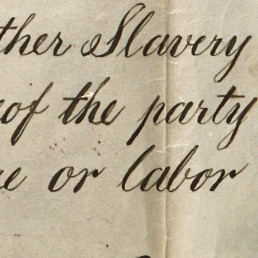 ther Slavery
of the party
or labor